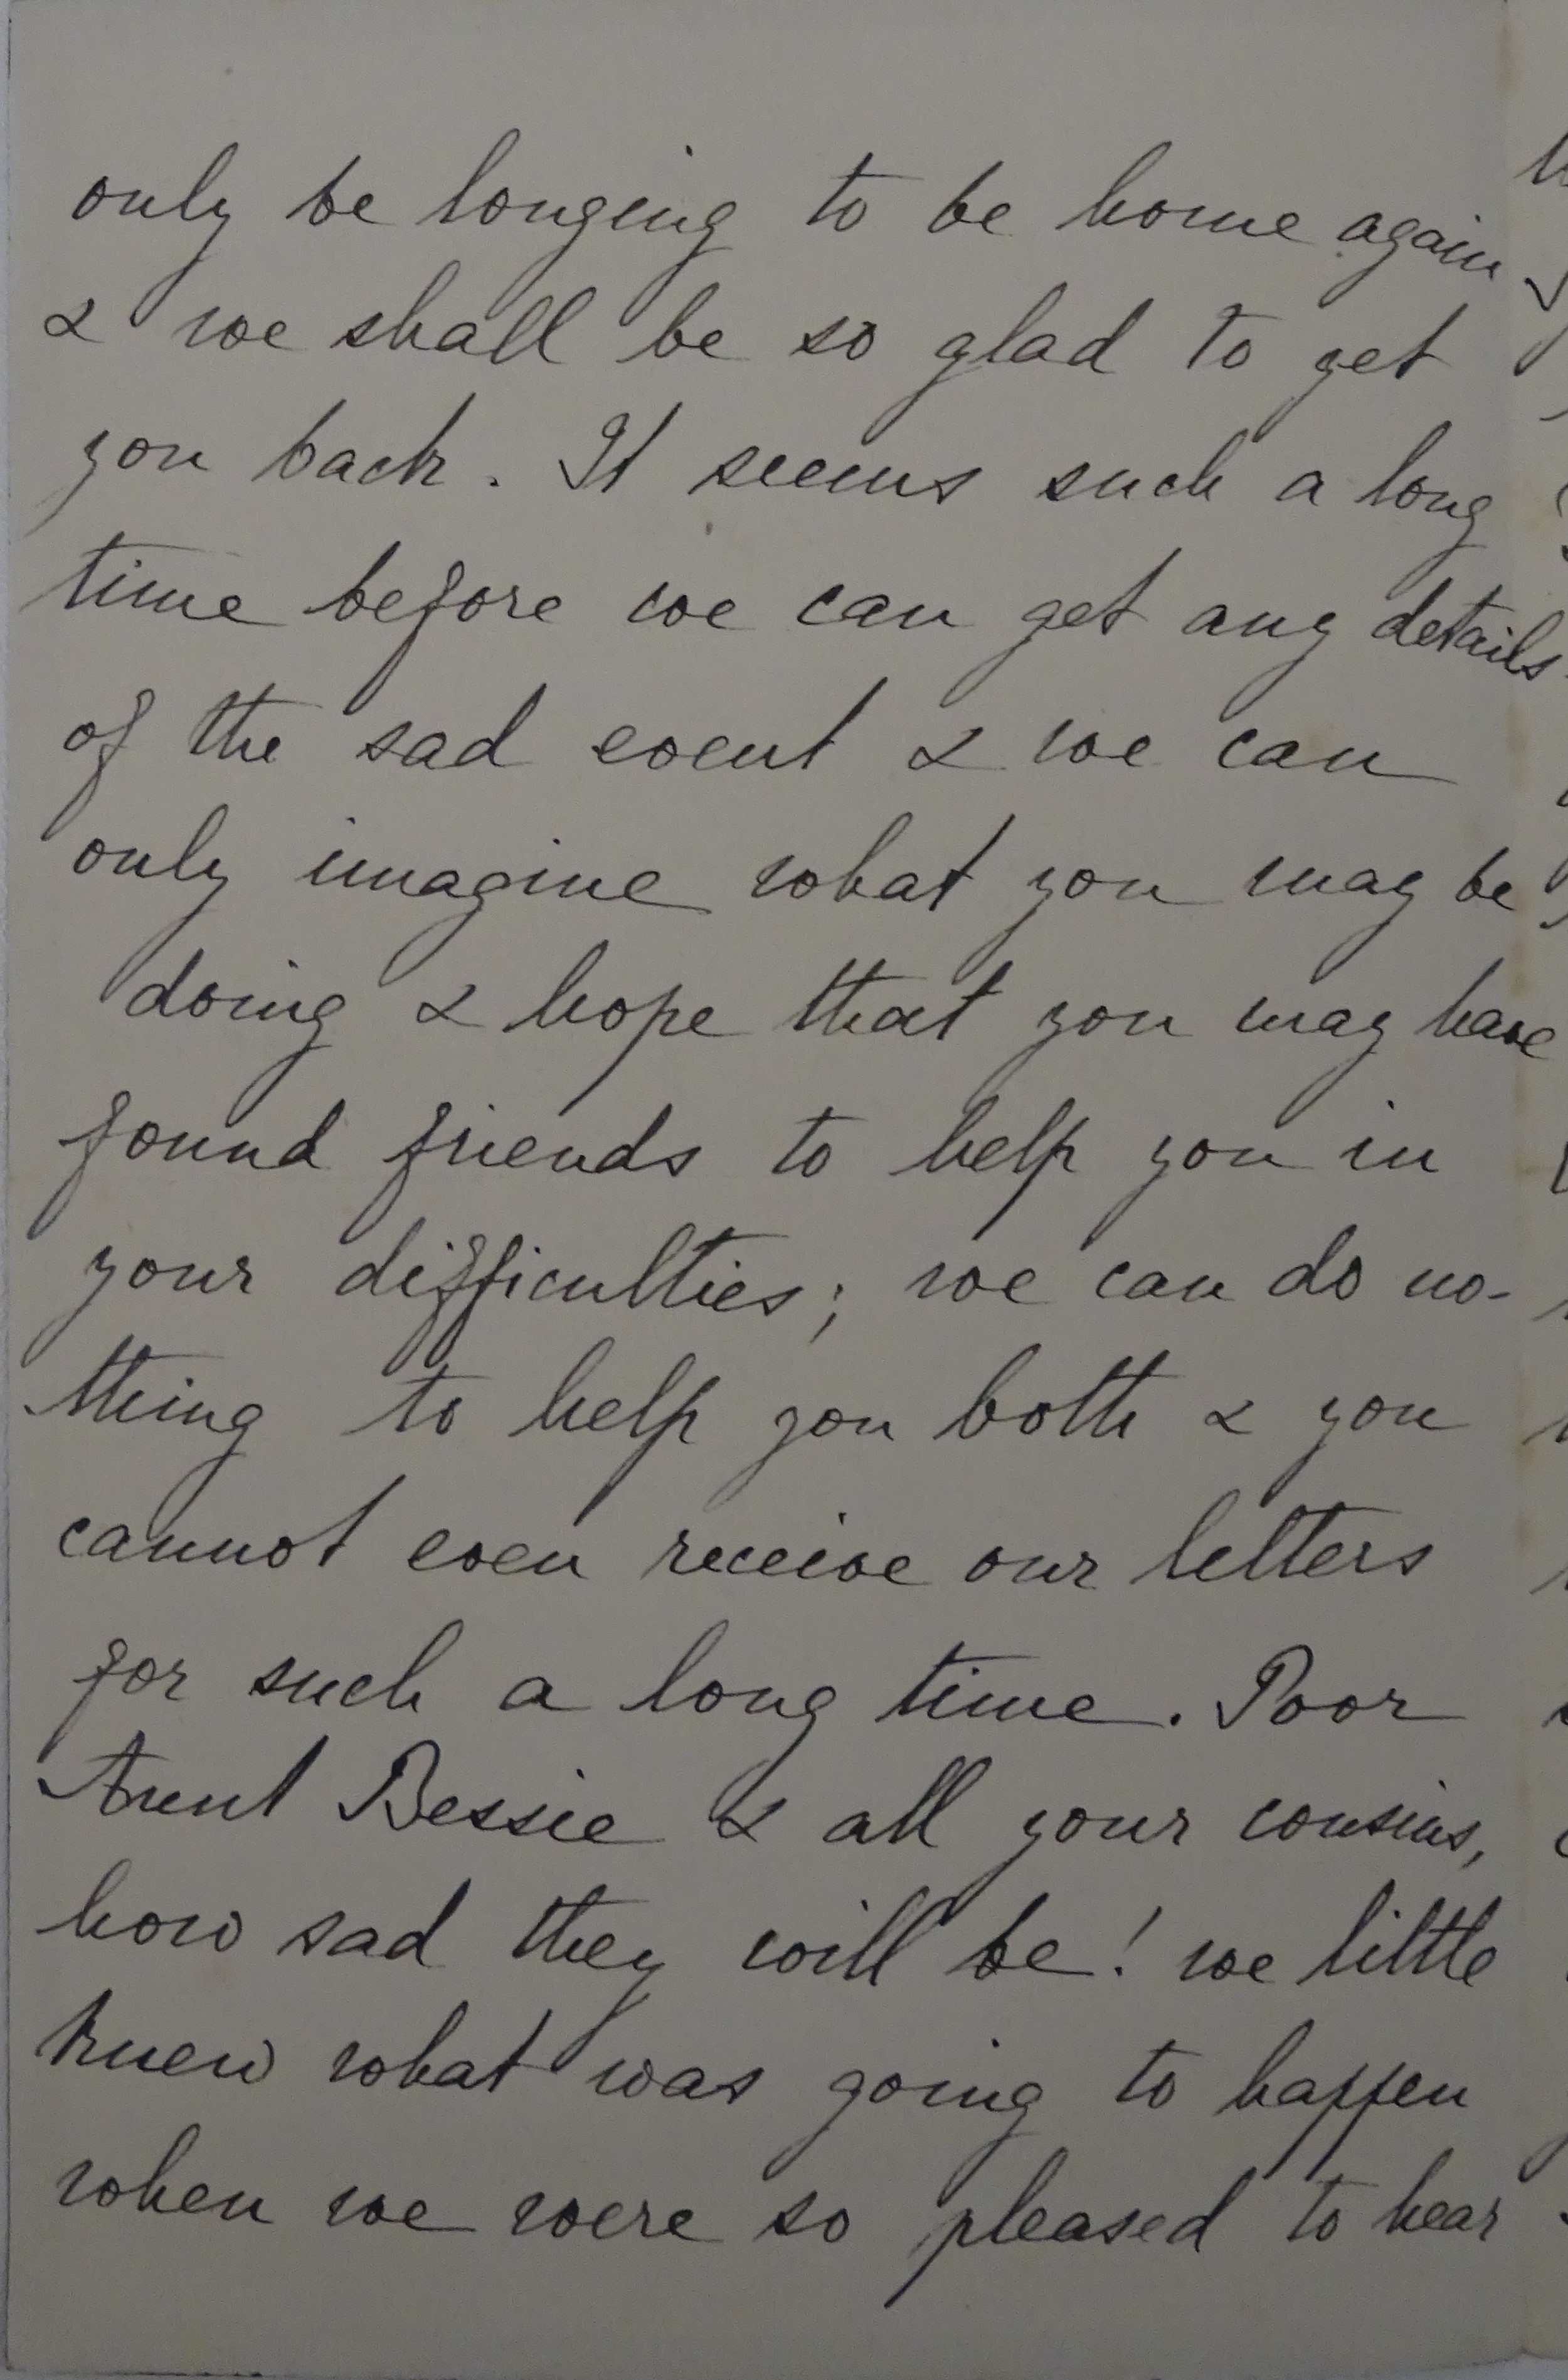 only be longing to be home again
& we shall be so glad to get
you back. It seems such a long
time before we can get any details
of the sad event & we can
only imagine what you may be
doing & hope that you may have
found friends to help you in
your difficulties; we can do no-
thing to help you both & you
cannot even receive our letters
for such a long time. Poor
Aunt Bessie & all your cousins,
how sad they will be! we little
knew what was going to happen
when we were so pleased to hear